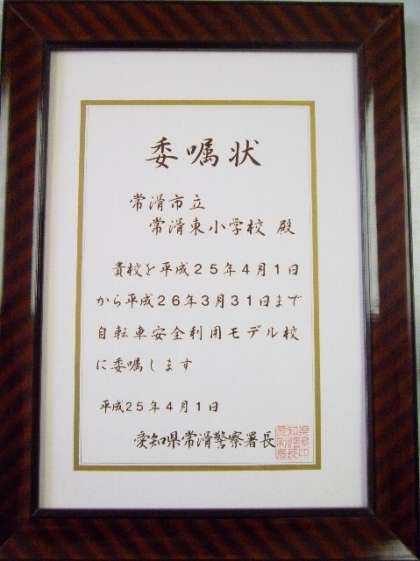 委嘱状
常滑市立
常滑東小学校 殿
貴校を平成25年4月1日
から平成26年3月31日まで
自転車安全利用モデル校
に委嘱します
平成25年4月1日
愛知県常滑警察署長